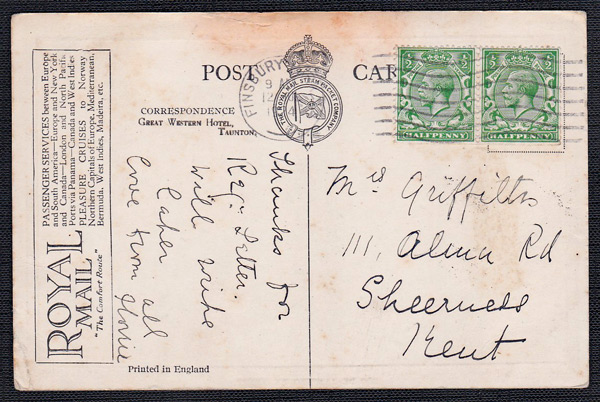 POST CARD
CORRESPONDENCE
GREAT WESTERN HOTEL,
TAUNTON.
Thanks for
Letter.
will write
Later
Love from all
Florrie
Printed in England
PASSENGER SERVICES between Europe
and South America—Europe and New York
and Canada—London and North Pacific
Ports via Panama—Canada and West Indies
PLEASURE CRUISES to Norway
Northern Capitals of Europe, Mediterranean,
Bermuda, West Indies, Madeira, etc.
ROYAL
MAIL
"The Comfort Route"
THE ROYAL MAIL STEAM PACKET COMPANY
FINSBURY
HALFPENNY
HALFPENNY
Mrs Griffiths
111, Alma Rd
Sheerness
Kent